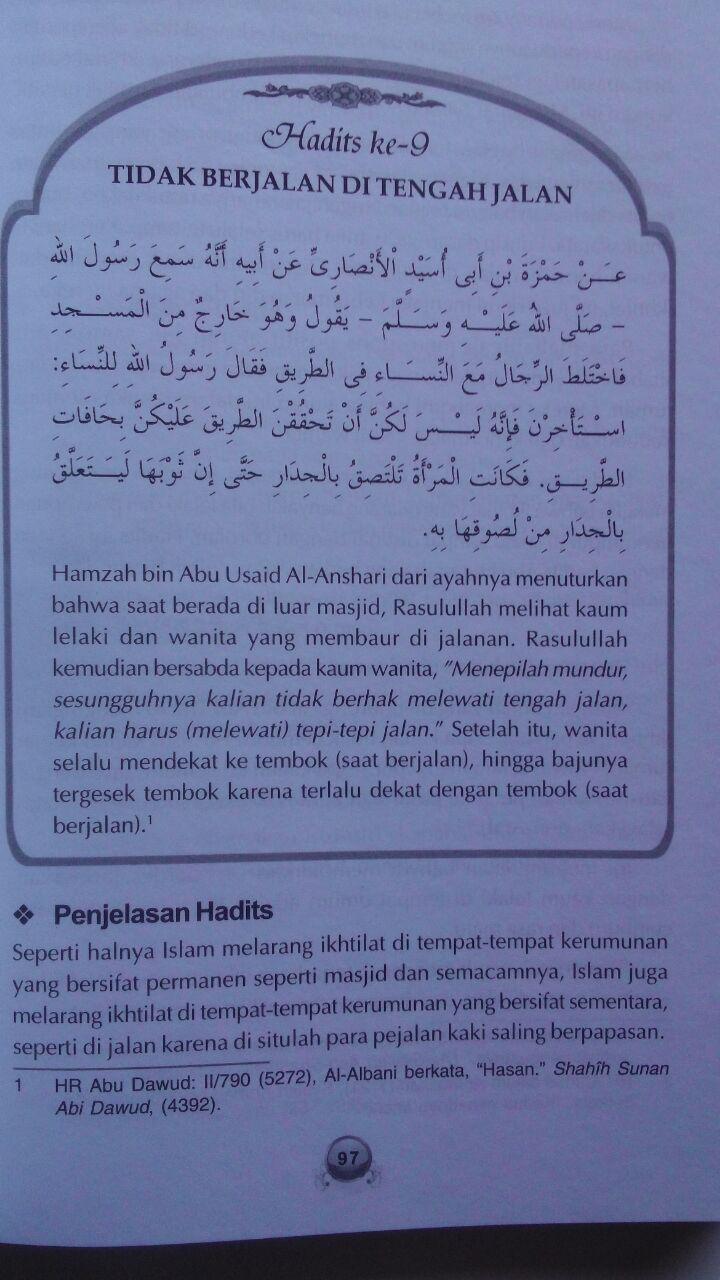 Hadits ke-9
TIDAK BERJALAN DI TENGAH JALAN
عَـــنْ حَمْزَةَ بْنِ أَبِى أُسَيْدٍ الْأَنْصَارِىِّ عَنْ أَبِيهِ أَنَّهُ سَمِعَ رَسُولَ اللهِ
– صَلَّى اللهُ عَلَيْـــهِ وَسَـــلَّمَ – يَقُولُ وَهُوَ خَارِجٌ مِنَ الْمَسْـــجِدِ
فَاخْتَلَطَ الرِّجَالُ مَعَ النِّسَـــاءِ فِى الطَّرِيقِ فَقَالَ رَسُولُ اللهِ لِلنِّسَاءِ:
اسْـــتَأْخِرْنَ فَإِنَّهُ لَيْـــسَ لَكُنَّ أَنْ تَحْقُقْنَ الطَّرِيقَ عَلَيْكُنَّ بِحَافَاتِ
الطَّرِيـــقِ. فَكَانَتِ الْمَرْأَةُ تَلْتَصِقُ بِالْجِدَارِ حَتَّى إِنَّ ثَوْبَهَا لَيَـــتَعَلَّقُ
بِالْجِدَارِ مِنْ لُصُوقِهَا بِهِ.
Hamzah bin Abu Usaid Al-Anshari dari ayahnya menuturkan
bahwa saat berada di luar masjid, Rasulullah melihat kaum
lelaki dan wanita yang membaur di jalanan. Rasulullah
kemudian bersabda kepada kaum wanita, "Menepilah mundur,
sesungguhnya kalian tidak berhak melewati tengah jalan,
kalian harus (melewati) tepi-tepi jalan." Setelah itu, wanita
selalu mendekat ke tembok (saat berjalan), hingga bajunya
tergesek tembok karena terlalu dekat dengan tembok (saat
berjalan).¹
❖ Penjelasan Hadits
Seperti halnya Islam melarang ikhtilat di tempat-tempat kerumunan
yang bersifat permanen seperti masjid dan semacamnya, Islam juga
melarang ikhtilat di tempat-tempat kerumunan yang bersifat sementara,
seperti di jalan karena di situlah para pejalan kaki saling berpapasan.
1 HR Abu Dawud: II/790 (5272), Al-Albani berkata, "Hasan." Shahîh Sunan
Abi Dawud, (4392).
97